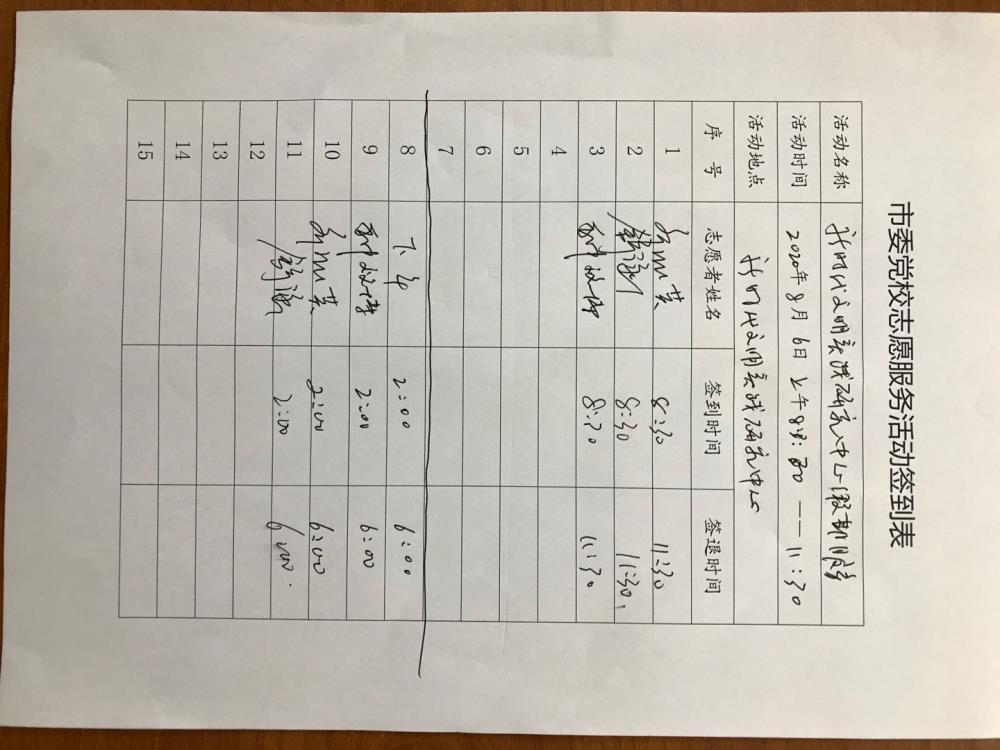 市委党校志愿服务活动签到表
活动名称 新时代文明实践研究中心假期服务
活动时间 2020年8月6日 上午8:30——11:30
活动地点 新时代文明实践研究中心
序号 志愿者姓名 签到时间 签退时间
1 8:30 11:30
2 8:30 11:30
3 8:30 11:30
4
5
6
7
8 下午 2:00 6:00
9 2:00 6:00
10 2:00 6:00
11 2:00 6:00
12
13
14
15